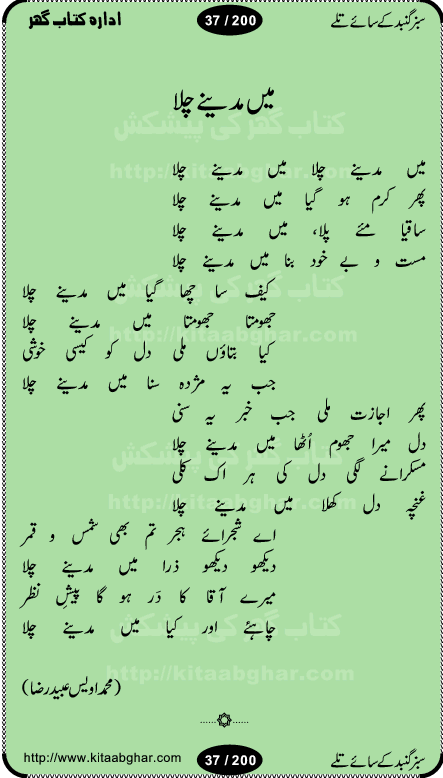 سبز گنبد کے سائے تلے 37 / 200 ادارہ کتاب گھر
میں مدینے چلا
کتاب گھر کی پیشکش
http://kitaabghar.com
میں مدینے چلا میں مدینے چلا
پھر کرم ہو گیا میں مدینے چلا
ساقیا مئے پلا، میں مدینے چلا
مست و بے خود بنا میں مدینے چلا
کیف سا چھا گیا میں مدینے چلا
کتاب گھر کی پیشکش
جھومتا جھومتا میں مدینے چلا
http://kitaabghar.com
کیا بتاؤں ملی دل کو کیسی خوشی
جب یہ مژدہ سنا میں مدینے چلا
پھر اجازت ملی جب خبر یہ سنی
دل میرا جھوم اُٹھا میں مدینے چلا
کتاب گھر کی پیشکش
مسکرانے لگی دل کی ہر اک کلی
http://kitaabghar.com
غنچہ دل کھلا میں مدینے چلا
اے شجرائے ہجر تم بھی شمس و قمر
دیکھو دیکھو ذرا میں مدینے چلا
میرے آقا کا دَر ہو گا پیشِ نظر
چاہئے اور کیا میں مدینے چلا
کتاب گھر کی پیشکش
http://kitaabghar.com
(محمد اویس عبید رضا)
سبز گنبد کے سائے تلے 37 / 200 http://www.kitaabghar.com